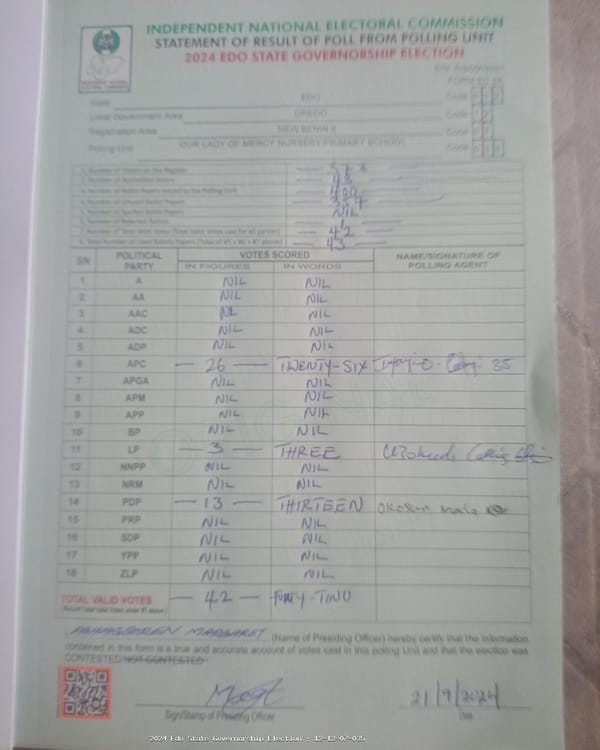 INDEPENDENT NATIONAL ELECTORAL COMMISSION
STATEMENT OF RESULT OF POLL FROM POLLING UNIT
2024 EDO STATE GOVERNORSHIP ELECTION
State EDO Code
Local Government Area OREDO Code
Registration Area NEW BENIN II Code
Polling Unit OUR LADY OF MERCY NURSERY/PRIMARY SCHOOL Code
1. Number of Voters on the Register
2. Number of Accredited Voters 43
3. Number of Ballot Papers Issued to the Polling Unit
4. Number of Unused Ballot Papers
5. Number of Spoiled Ballot Papers NIL
6. Number of Rejected Ballots 1
7. Number of Total Valid Votes (Total Valid Votes cast for all parties) 42
8. Total Number of Used Ballots Papers (Total of #5 + #6 + #7 above) 43
S/N POLITICAL PARTY VOTES SCORED NAME/SIGNATURE OF POLLING AGENT
IN FIGURES IN WORDS
1 A NIL NIL
2 AA NIL NIL
3 AAC NIL NIL
4 ADC NIL NIL
5 ADP NIL NIL
6 APC — 26 — TWENTY-SIX
7 APGA NIL NIL
8 APM NIL NIL
9 APP NIL NIL
10 BP NIL NIL
11 LP — 3 — THREE
12 NNPP NIL NIL
13 NRM NIL NIL
14 PDP — 13 — THIRTEEN
15 PRP NIL NIL
16 SDP NIL NIL
17 YPP NIL NIL
18 ZLP NIL NIL
TOTAL VALID VOTES — 42 —
MARGARET (Name of Presiding Officer) hereby certify that the information
contained in this form is a true and accurate account of votes cast in this polling Unit and that the election was
CONTESTED/NOT CONTESTED
21/9/2024
Sign/Stamp of Presiding Officer Date
2024 Edo State Governorship Election : 12-12-02-035